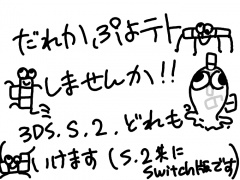 だれか,ぷよテト
しませんか!!
3DS.S.2.どれも
(いけます(S.2共に
switch版です)